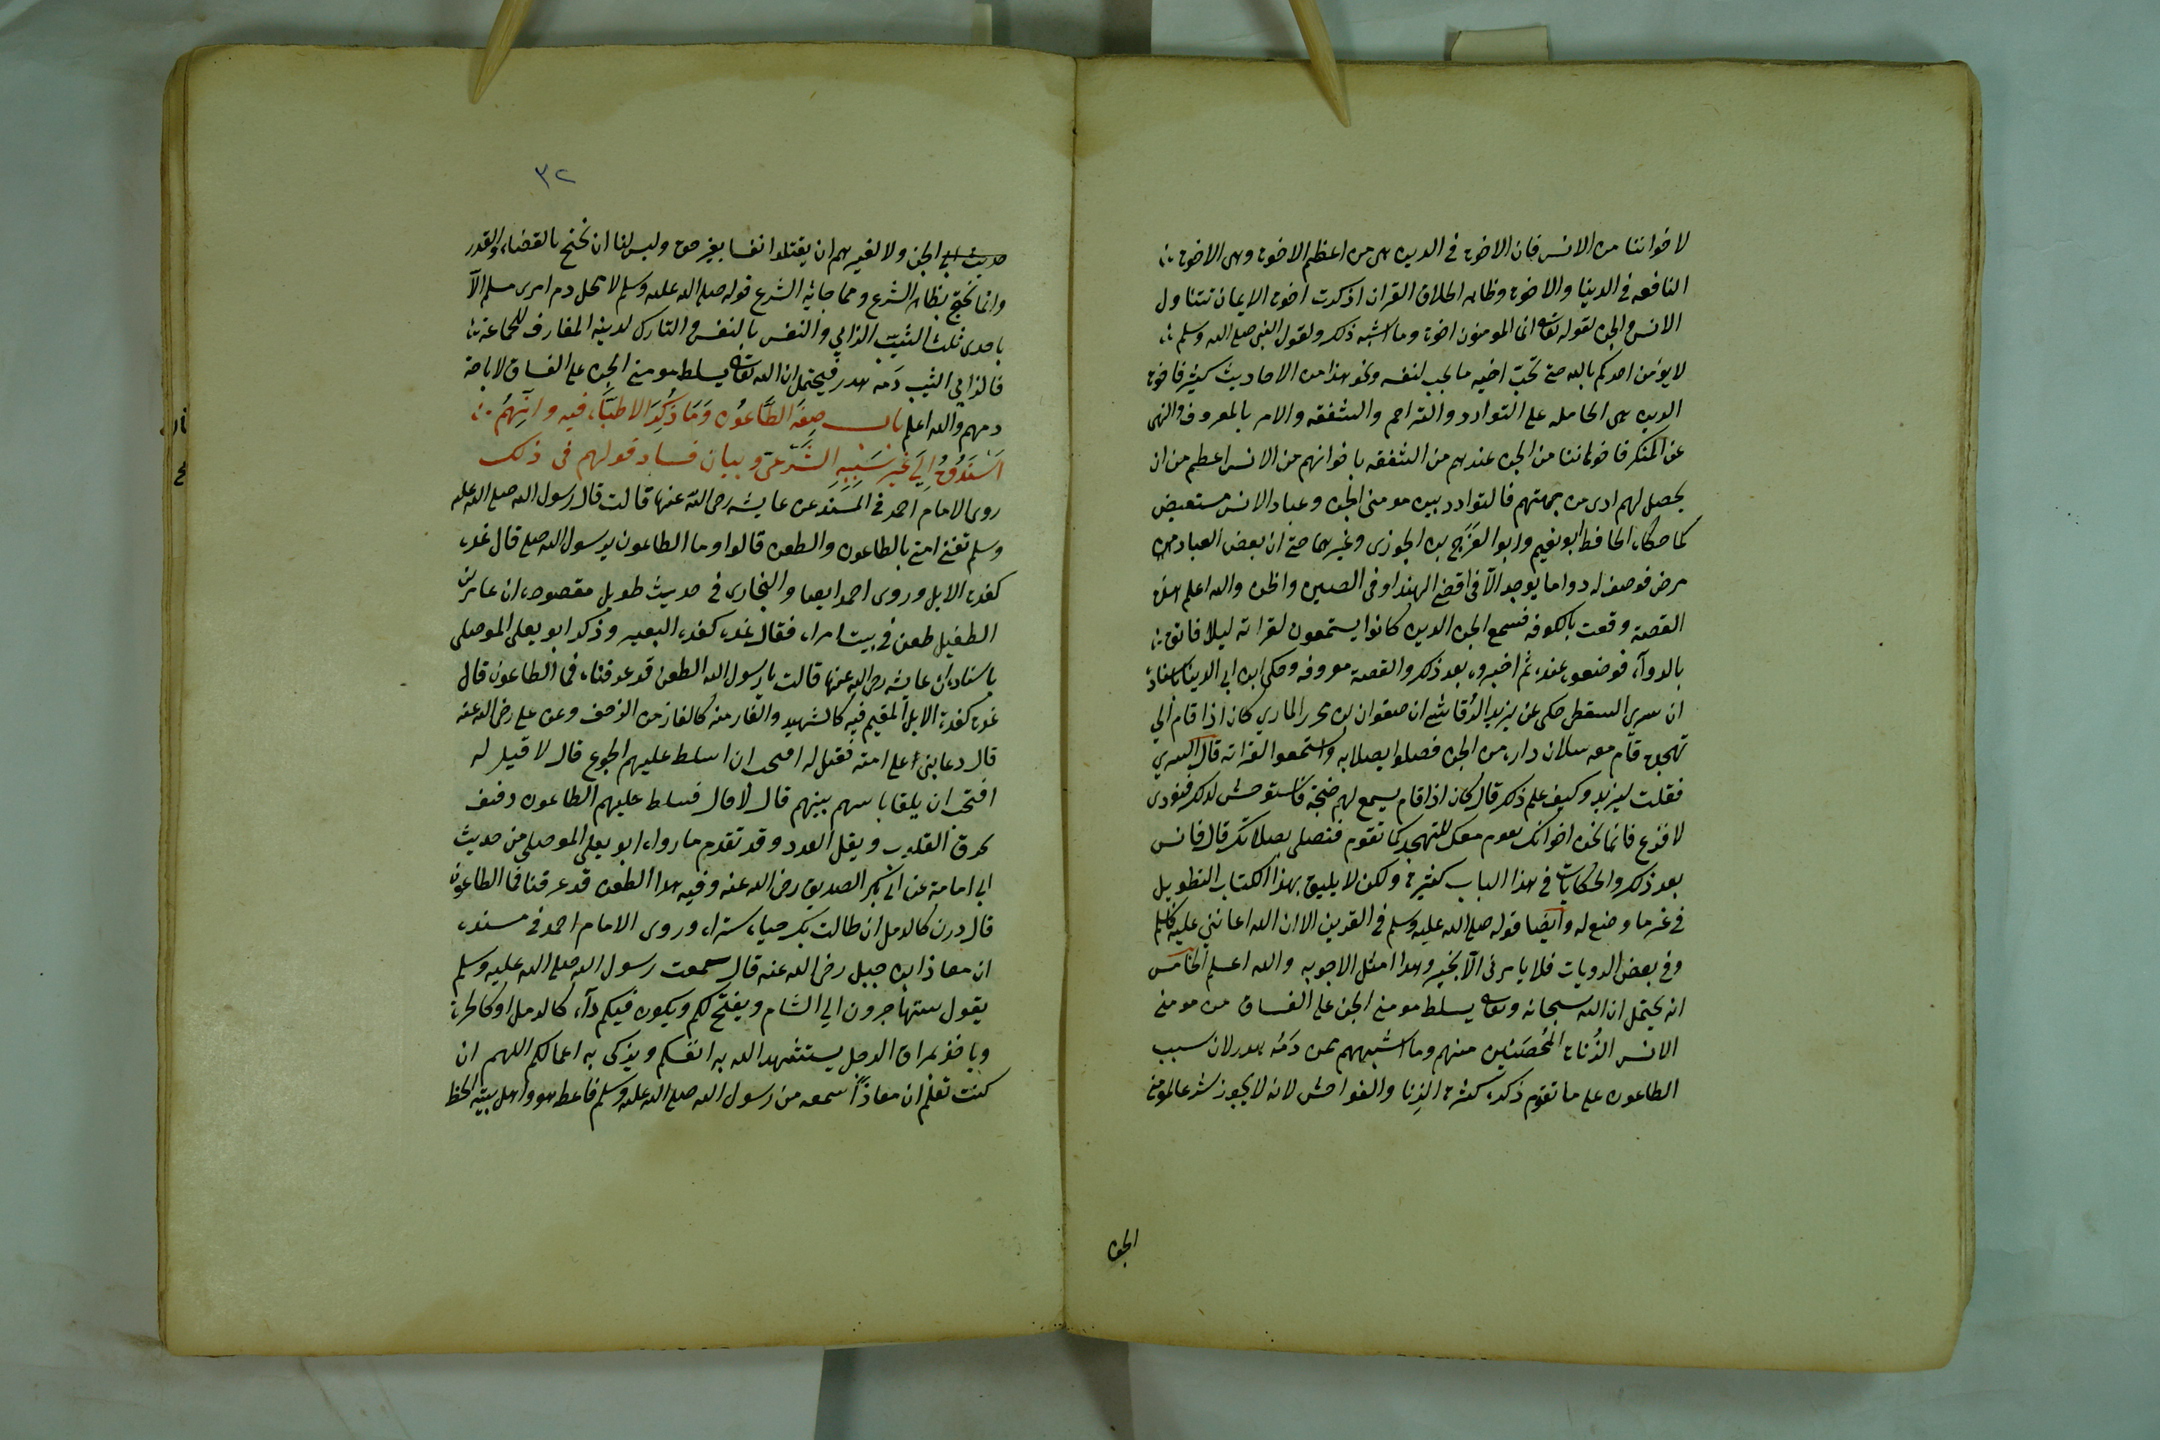 لاخواننا من الانس فان الاخوة في الدين هي من اعظم الاخوة وهي الاخوة
النافعة في الدنيا والاخرة وظاهر اطلاق القران اذ ذكرت اخوة الايمان تتناول
الانس والجن لقوله تعالى انما المومنون اخوة وما اشبه ذلك ولقول النبي صلى الله وسلم
لا يؤمن احدكم بالله حتى يحب اخيه ما يحب لنفسه ونحو هذا من الاحاديث كثير فاخوة
الدين هي الحامله على التوادد والتراحم والشفقه والامر بالمعروف والنهي
عن المنكر فاخواننا من الجن عندهم من الشفقه باخوانهم من الانس اعظم من ان
يحصل لهم اذى من جهتهم فالتوادد بين مومني الجن وعباد الانس مستفيض
كما حكاه الحافظ ابو نعيم وابو الفرج بن الجوزي وغيرهما حتى ان بعض العباد من
مرض فوصف له دوا ما يوجد الا في اقصى الهند او في الصين واظن والله اعلم هذه
القصة وقعت بالكوفه فسمع الجن الذين كانوا يستمعون لقراته ليلا فاتوه
بالدوآء فوضعوه عنده ثم اخبروه بعد ذلك والقصة معروفه وحكى ابن ابي الدنيا باسناده
ان سري السقطي حكى عن يزيد الرقاشي ان صفوان بن محرز المازني كان اذا قام الي
تهجده قام معه سكان داره من الجن فصلوا بصلاته واستمعوا لقراته قال السري
فقلت ليزيد وكيف علم ذلك قال كان اذا قام يسمع لهم ضجة فاستوحش لذلك فنودى
لا تفزع فانما نحن اخوانك نقوم معك للتهجد كما تقوم فنصلي بصلاتك قال فانس
بعد ذلك والحكايات في هذا الباب كثيرة ولكن لا يليق بهذا الكتاب التطويل
في غير ما وضع له وايضا قوله صلى الله عليه وسلم في القرين الا ان الله اعانني عليه فاسلم
وفي بعض الروايات فلا يامرني الا بخير وهذا امثل الاجوبه والله اعلم الخامس
انه يحتمل ان الله سبحانه وتعالى يسلط مومني الجن على الفساق من مومني
الانس الزناة المحصنين منهم وما اشبههم ممن دمه هدر لان سبب
الطاعون على ما تقدم ذكره كثرة الزنا والفواحش لانه لا يجوز شرعا لمومني
الجن
٣٢
الجن ولا لغيرهم ان يقتلوا نفسا بغير حق وليس لنا ان نحتج بالقضاء والقدر
وانما نحتج بظاهر الشرع ومما جا في الشرع قوله صلى الله عليه وسلم لا يحل دم امرى مسلم الا
باحدى ثلث الثيب الزاني والنفس بالنفس والتارك لدينه المفارق للجماعة
فالزاني الثيب دمه هدر فيحتمل ان الله تعالى يسلط مومني الجن على الفساق لاباحة
دمهم والله اعلم باب صفة الطاعون وما ذكره الاطبآء فيه وانهم
اسندوه الي غير سببه الشرعي وبيان فساد قولهم في ذلك
روى الامام احمد في المسند عن عايشه رضي الله عنها قالت قال رسول الله صلى الله عليه
وسلم تفنى امتي بالطاعون والطعن قالوا وما الطاعون يرسول الله صلع قال غده
كغدة الابل وروى احمد ايضا والبخاري في حديث طويل مقصوده ان عامر بن
الطفيل طعن في بيت امراه فقال غده كغدة البعير وذكر ابو يعلى الموصلي
باسناده ان عايشه رضى الله عنها قالت يارسول الله الطعن قد عرفناه فما الطاعون قال
غدة كغدة الابل المقيم فيه كالشهيد والفار منه كالفار من الزحف وعن علي رضي الله عنه
قال دعا نبي على امته فقيل له اتحب ان اسلط عليهم الجوع قال لا قيل له
اتحب ان يلقا باسهم بينهم قال لا قال فسلط عليهم الطاعون
يحرق القلوب ويقل العدد وقد تقدم ما رواه ابو يعلى الموصلي من حديث
ابي امامة عن ابي بكر الصديق رضي الله عنه وفيه هذا الطعن قد عرفنا فما الطاعون
قال درن كالدمل ان طالت بك حياه ستراه وروى الامام احمد في مسنده
ان معاذا بن جبل رضي الله عنه قال سمعت رسول الله صلى الله عليه وسلم
يقول ستهاجرون الي الشام ويفتح لكم ويكون فيكم دآء كالدمل او كالحرة
وياخذ بمراق الرجل يستشهد الله به انفسكم ويزكى به اعمالكم اللهم ان
كنت تعلم ان معاذًا سمعه من رسول الله صلى الله عليه وسلم فاعطه هو واهل بيته الحظ